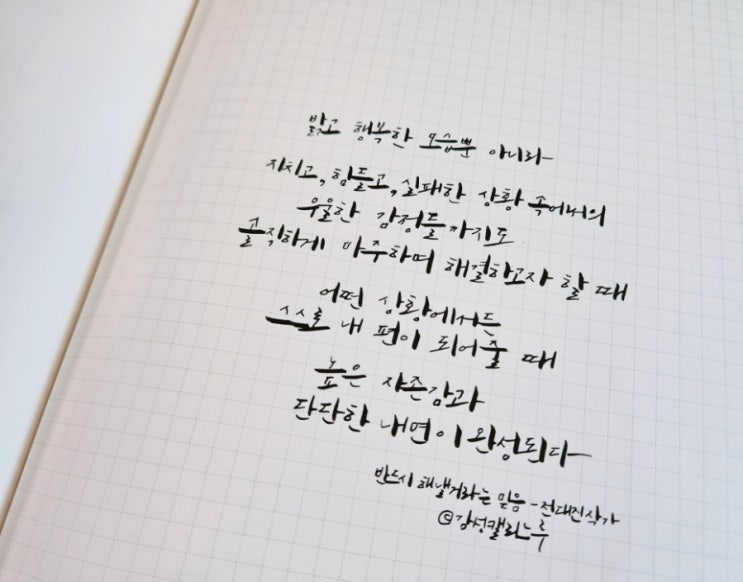 밝고 행복한 모습뿐 아니라
지치고, 힘들고, 실패한 상황 속에서의
우울한 감정들까지도
솔직하게 마주하며 해결하고자 할 때
어떤 상황에서든
스스로 내 편이 되어줄 때
높은 자존감과
단단한 내면이 완성된다
반드시 해낼거라는 믿음 - 전대진작가
©감성캘리느루